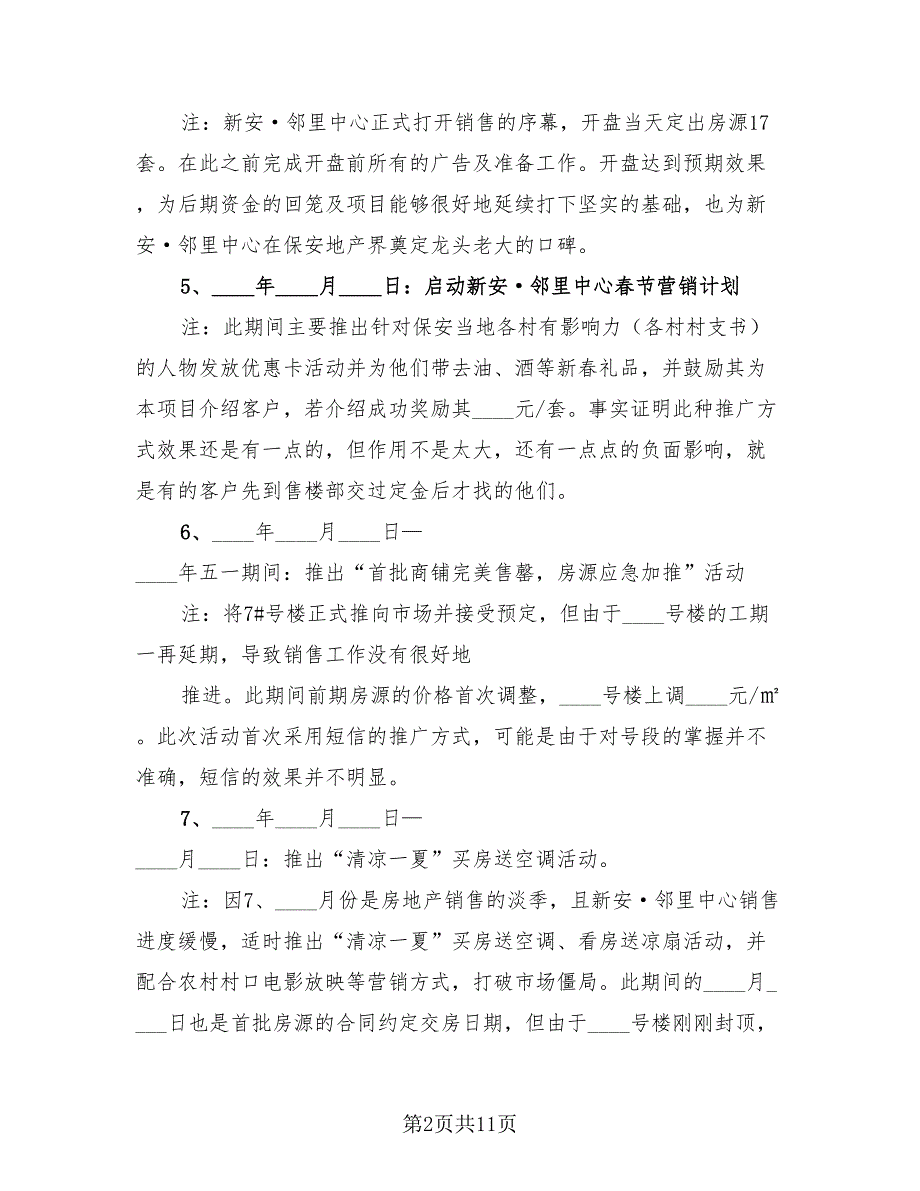 注：新安·邻里中心正式打开销售的序幕，开盘当天定出房源17
套。在此之前完成开盘前所有的广告及准备工作。开盘达到预期效果
，为后期资金的回笼及项目能够很好地延续打下坚实的基础，也为新
安·邻里中心在保安地产界奠定龙头老大的口碑。
5、____年____月____日：启动新安·邻里中心春节营销计划
注：此期间主要推出针对保安当地各村有影响力（各村村支书）
的人物发放优惠卡活动并为他们带去油、酒等新春礼品，并鼓励其为
本项目介绍客户，若介绍成功奖励其____元/套。事实证明此种推广方
式效果还是有一点的，但作用不是太大，还有一点点的负面影响，就
是有的客户先到售楼部交过定金后才找的他们。
6、____年____月____日—
____年五一期间：推出“首批商铺完美售罄，房源应急加推”活动
注：将7#号楼正式推向市场并接受预定，但由于____号楼的工期
一再延期，导致销售工作没有很好地
推进。此期间前期房源的价格首次调整，____号楼上调____元/㎡
。此次活动首次采用短信的推广方式，可能是由于对号段的掌握并不
准确，短信的效果并不明显。
7、____年____月____日—
____月____日：推出“清凉一夏”买房送空调活动。
注：因7、____月份是房地产销售的淡季，且新安·邻里中心销售
进度缓慢，适时推出“清凉一夏”买房送空调、看房送凉扇活动，并
配合农村村口电影放映等营销方式，打破市场僵局。此期间的____月_
___日也是首批房源的合同约定交房日期，但由于____号楼刚刚封顶，
第2页共11页